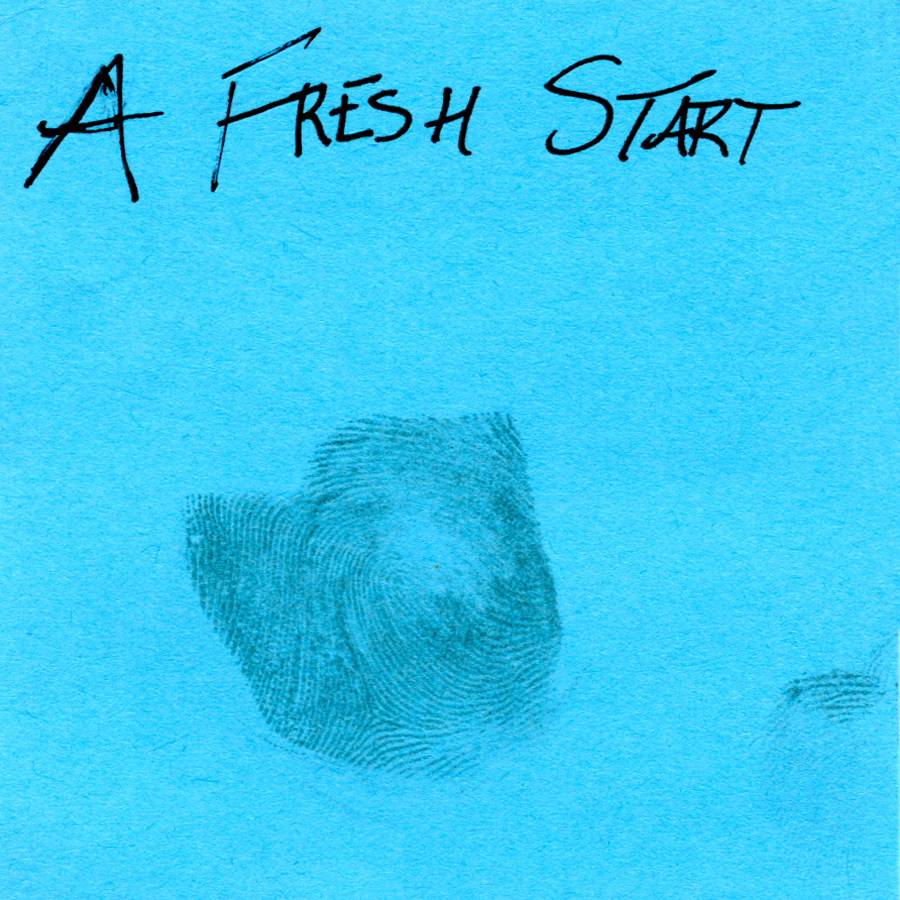 A FRESH START